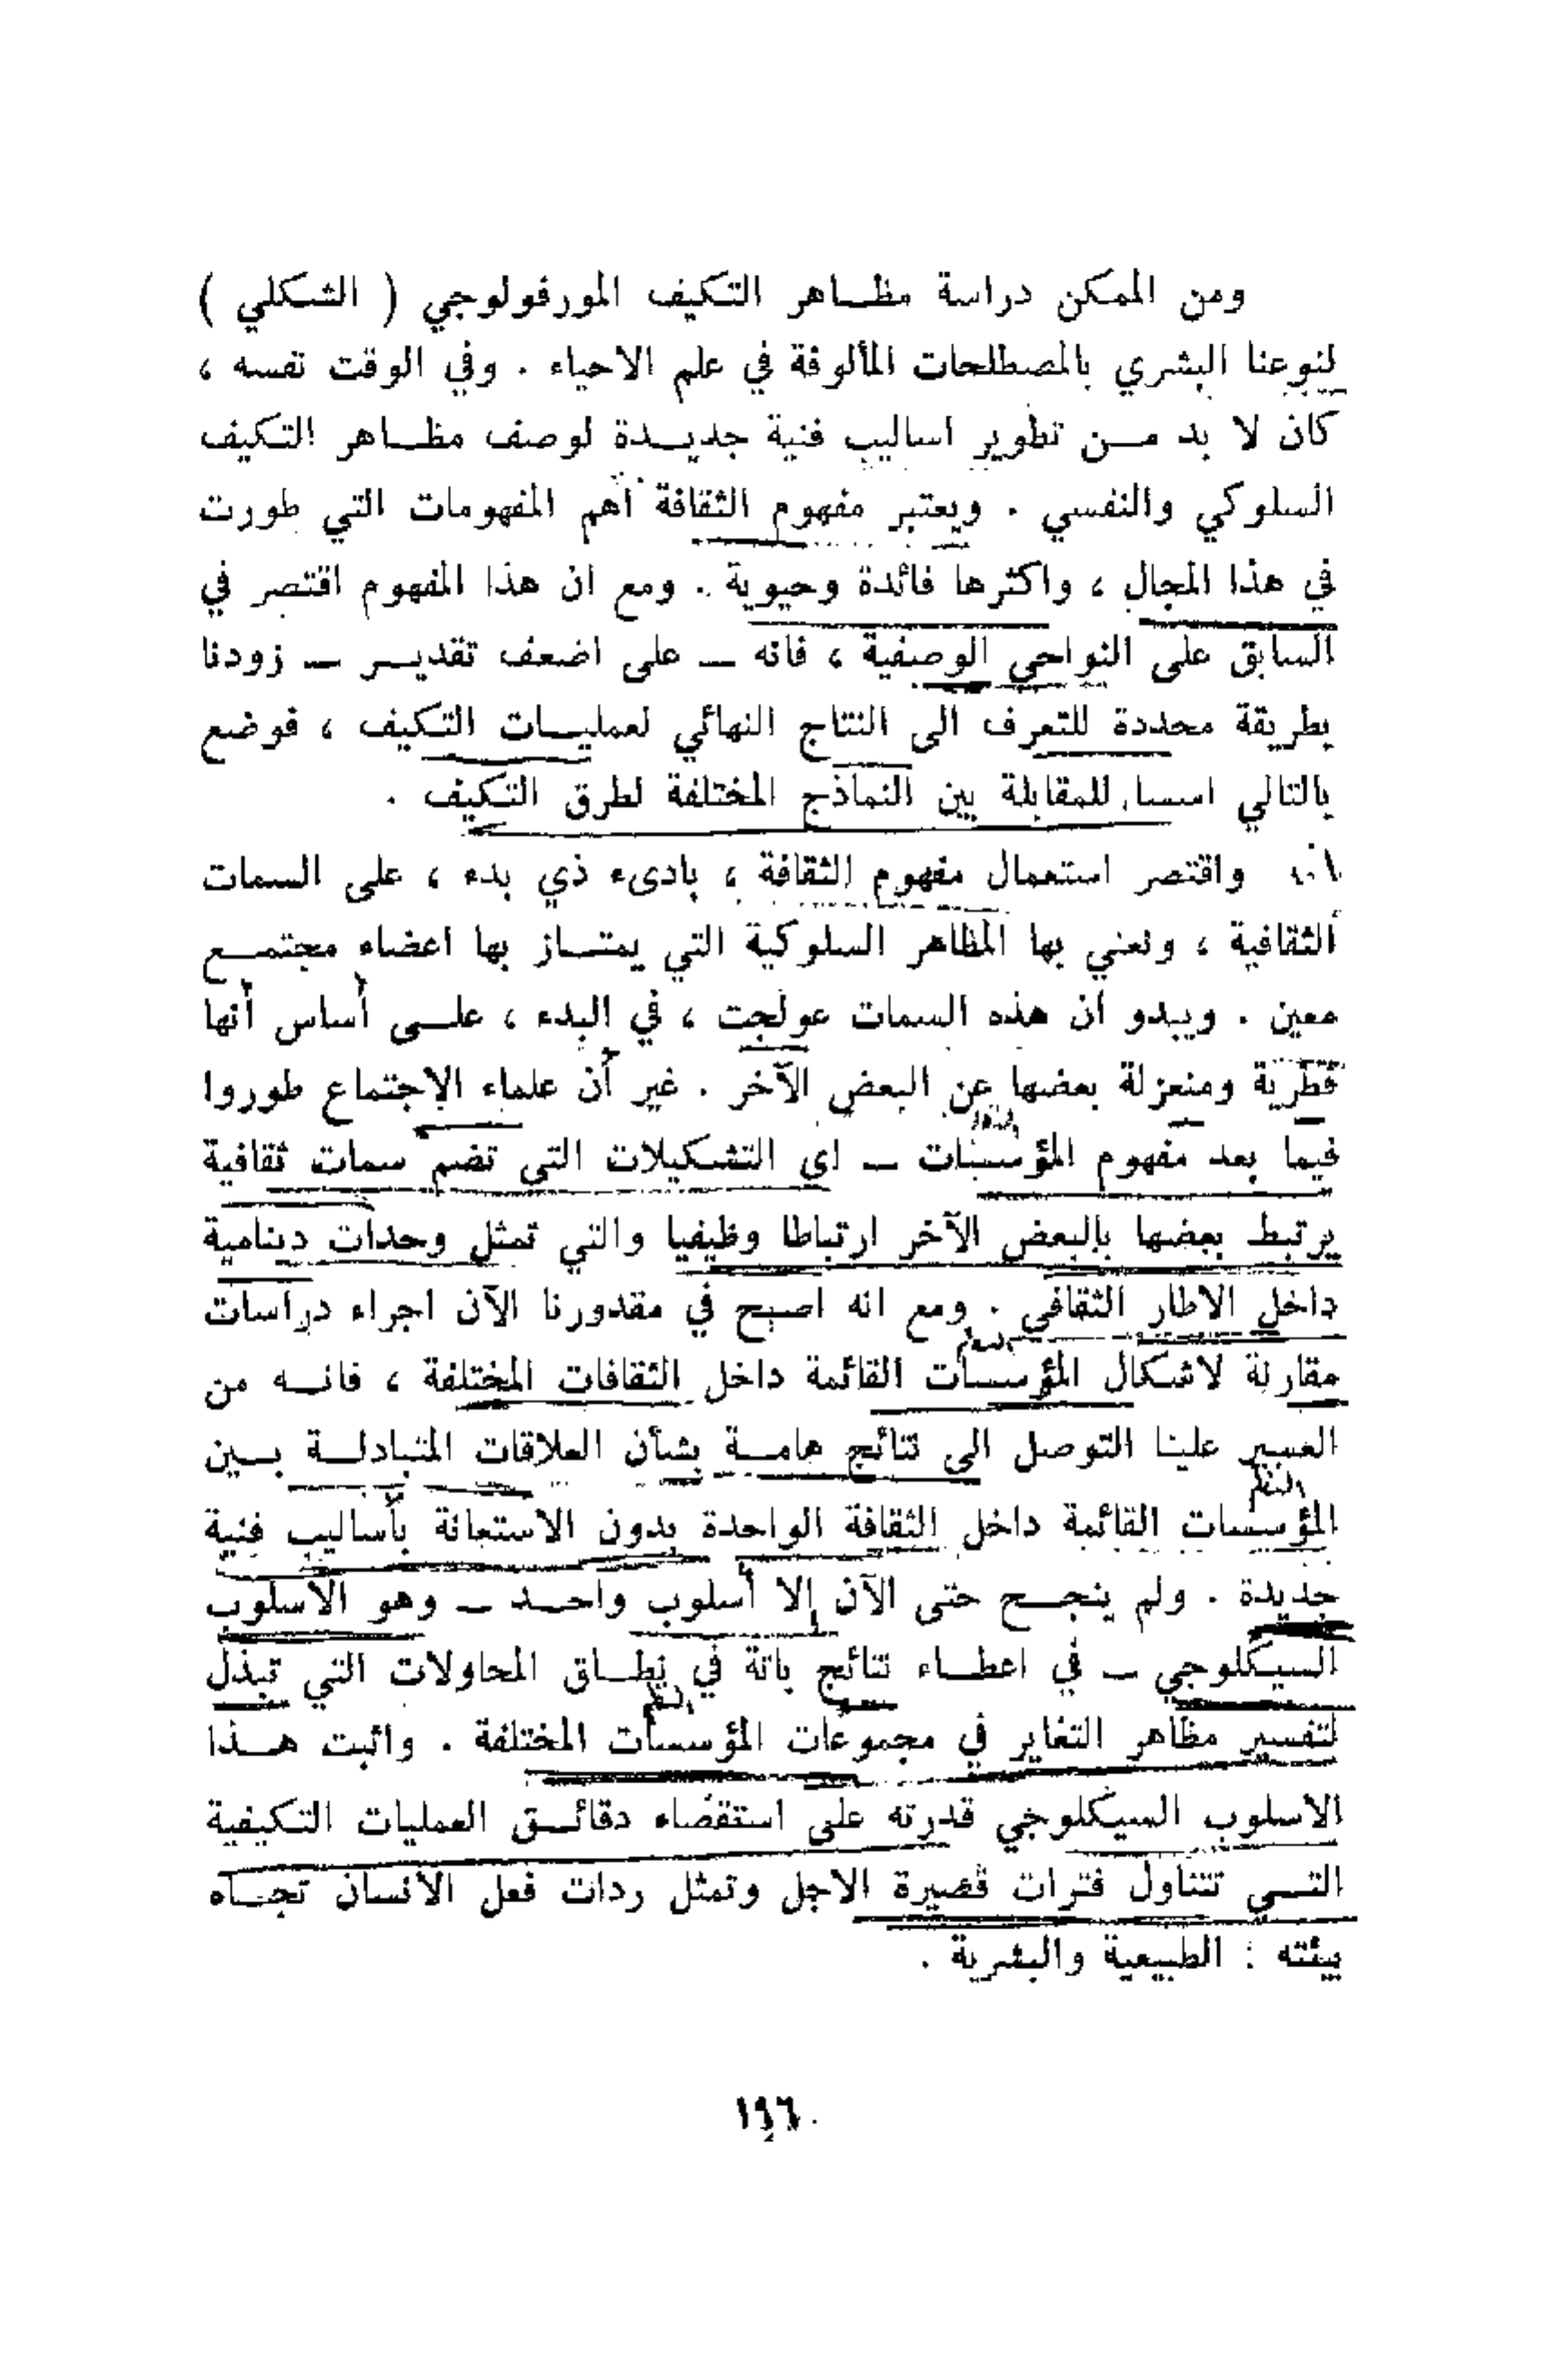 ومن الممكن دراسة مظــاهر التكيف المورفولوجي ( الشكلي )
لنوعنا البشري بالمصطلحات المألوفة في علم الاحياء . وفي الوقت نفسه ،
كان لا بد مــن تطوير اساليب فنية جديــدة لوصف مظــاهر التكيف
السلوكي والنفسي . ويعتبر مفهوم الثقافة أهم المفهومات التي طورت
في هذا المجال ، واكثرها فائدة وحيوية . ومع ان هذا المفهوم اقتصر في
السابق على النواحي الوصفية ، فانه ــ على اضعف تقديــر ــ زودنا
بطريقة محددة للتعرف الى النتاج النهائي لعمليــات التكيف ، فوضع
بالتالي اسسا للمقابلة بين النماذج المختلفة لطرق التكيف .
واقتصر استعمال مفهوم الثقافة ، بادىء ذي بدء ، على السمات
الثقافية ، ونعني بها المظاهر السلوكية التي يمتــاز بها اعضاء مجتمــع
معين . ويبدو ان هذه السمات عولجت ، في البدء ، علــى أساس أنها
فطرية ومنعزلة بعضها عن البعض الآخر . غير أن علماء الإجتماع طوروا
النظم
فيما بعد مفهوم المؤسسات ــ اي التشكيلات التي تضم سمات ثقافية
يرتبط بعضها بالبعض الآخر ارتباطا وظيفيا والتي تمثل وحدات دينامية
داخل الاطار الثقافي . ومع انه اصبح في مقدورنا الآن اجراء دراسات
النظم
مقارنة لاشكال المؤسسات القائمة داخل الثقافات المختلفة ، فانــه من
العسير علينا التوصل الى نتائج هامــة بشأن العلاقات المتبادلــة بــين
النظم
المؤسسات القائمة داخل الثقافة الواحدة بدون الاستعانة بأساليب فنية
جديدة . ولم ينجــح حتى الآن إلا أسلوب واحــد ــ وهو الاسلوب
السيكلوجي ــ في اعطــاء نتائج باتة في نطــاق المحاولات التي تبذل
النظم
لتفسير مظاهر التغاير في مجموعات المؤسسات المختلفة . واثبت هــذا
الاسلوب السيكلوجي قدرته على استقصاء دقائــق العمليات التكيفية
التــي تتناول فترات قصيرة الاجل وتمثل ردات فعل الانسان تجــاه
بيئته : الطبيعية والبشرية .
١٩٦